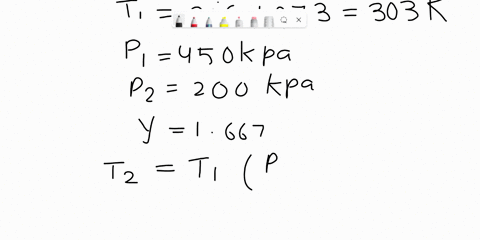 T₁ = 273 = 303 K
P₁ = 450 kpa
P₂ = 200 kpa
y = 1.667
T₂ = T₁ ( P